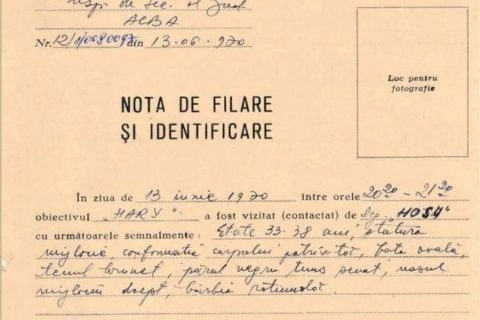 Insp. de sec. al Jud.
ALBA
Nr. 12/ din 13.06.970
Loc pentru
fotografie
NOTA DE FILARE
ȘI IDENTIFICARE
În ziua de 13 iunie 1970 între orele 20³⁰ - 21³⁰
obiectivul „HARY". a fost vizitat (contactat) de leg. "HOSU"
cu următoarele semnalmente: Etate 33-38 ani statura
mijlocie, conformația corpului potrivită, fața ovală,
tenul brunet, părul negru tuns scurt, nasul
mijlociu drept, bărbia rotundă.